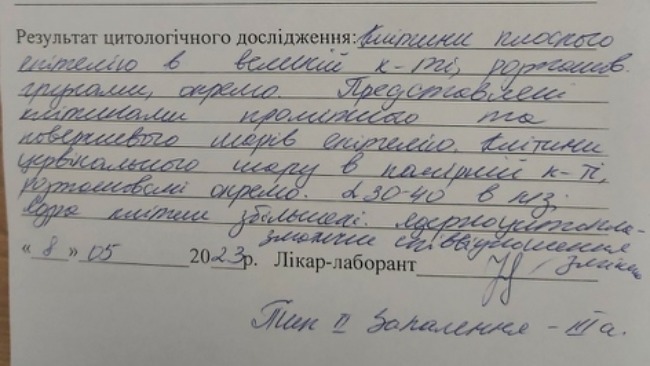 Результат цитологічного дослідження: Клітини плоского
епітелію в великій к-ті, розташов.
групами, окремо. Представлені
клітинами проміжного та
поверхневого шарів епітелію. Клітини
цервікального шару в помірній к-ті,
розташовані окремо. L 30-40 в п/з;
Ядра клітин збільшені. Ядерноцитопла-
зматичне співвідношення
« 8 » 05 2023 р. Лікар-лаборант змінено
Тип II Запалення - IIIа.